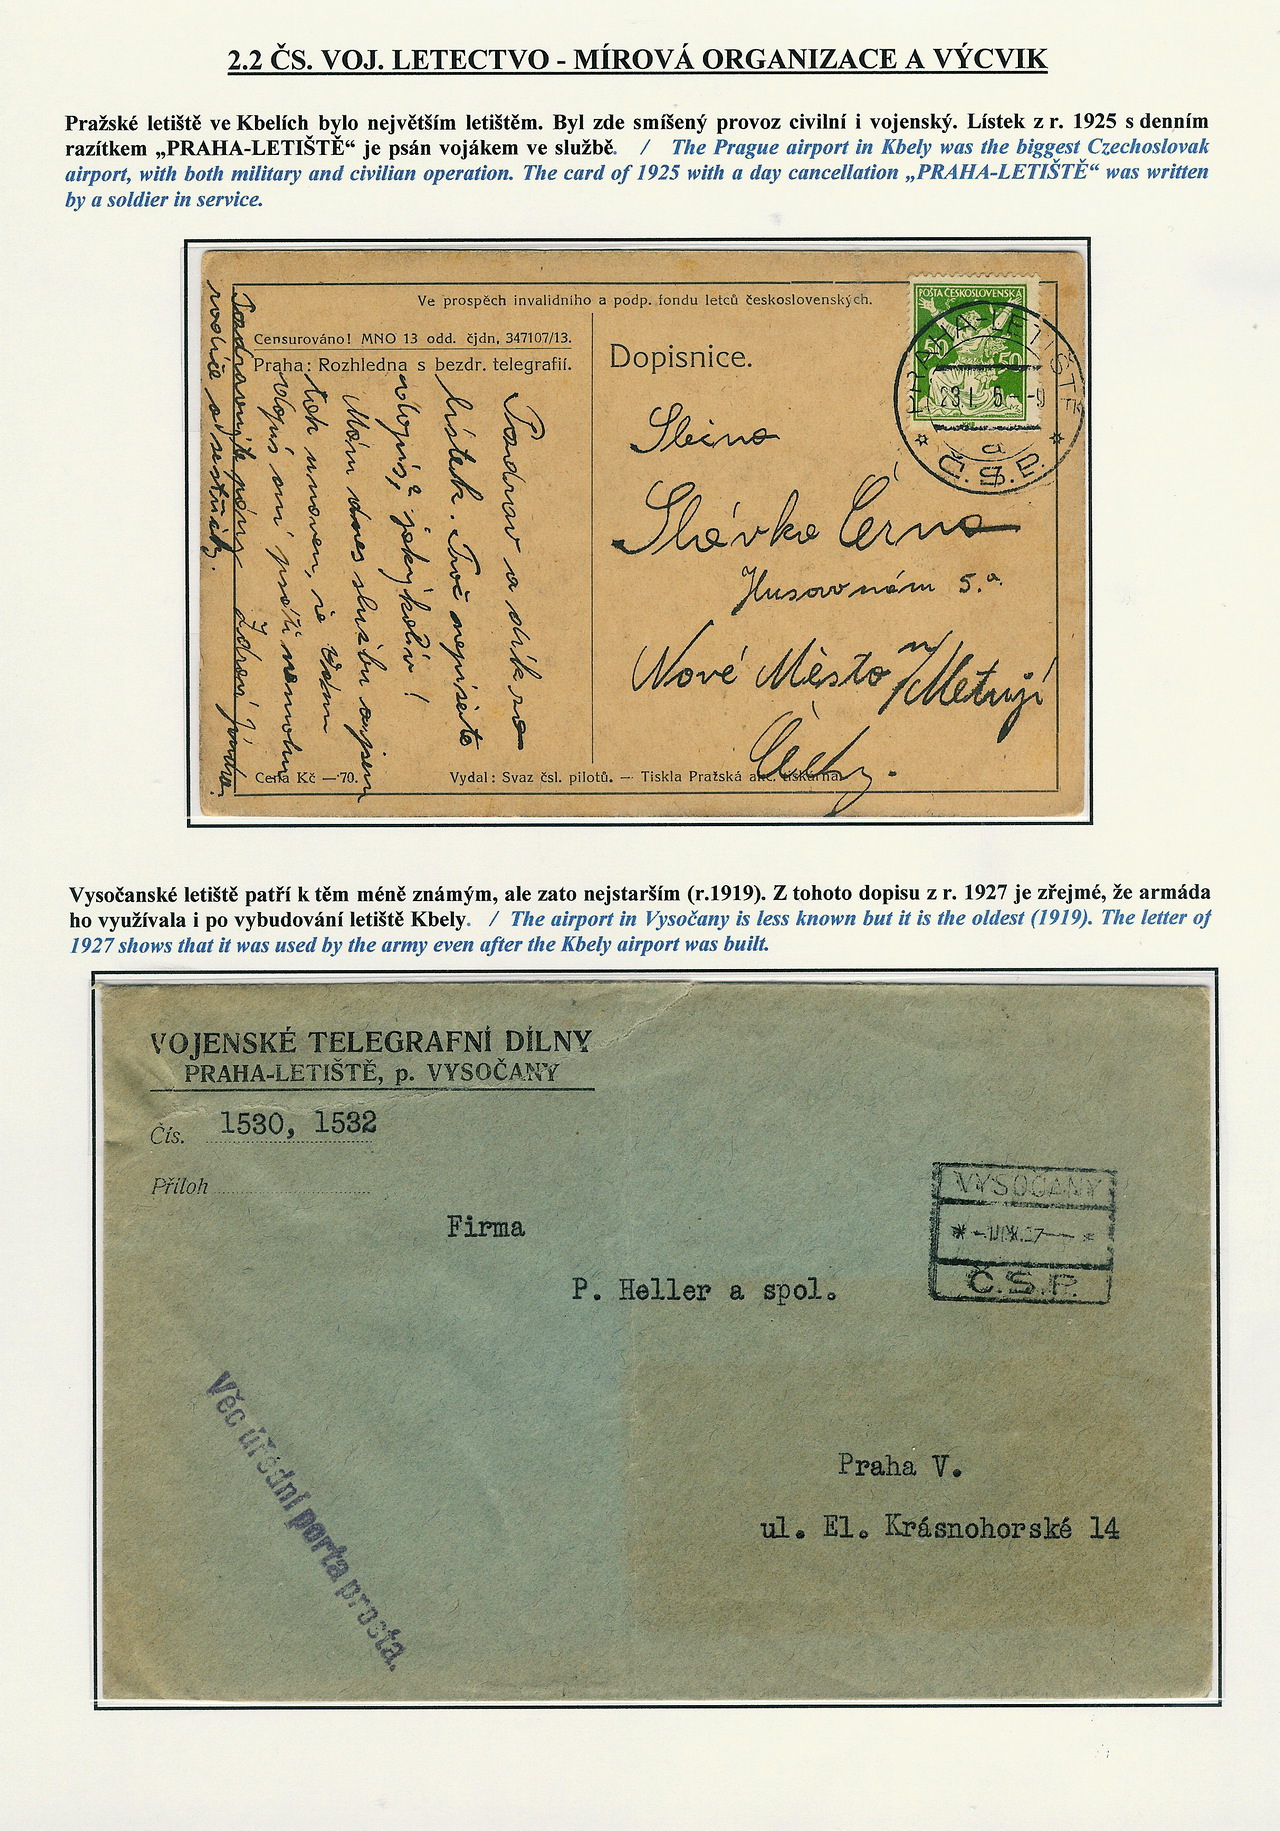 2.2 ČS. VOJ. LETECTVO - MÍROVÁ ORGANIZACE A VÝCVIK
Pražské letiště ve Kbelích bylo největším letištěm. Byl zde smíšený provoz civilní i vojenský. Lístek z r. 1925 s denním
razítkem „PRAHA-LETIŠTĚ“ je psán vojákem ve službě. / The Prague airport in Kbely was the biggest Czechoslovak
airport, with both military and civilian operation. The card of 1925 with a day cancellation „PRAHA-LETIŠTĚ“ was written
by a soldier in service.
Ve prospěch invalidního a podp. fondu letců československých.
Censurováno! MNO 13 odd. čjdn, 347107/13.
Praha: Rozhledna s bezdr. telegrafií.
Dopisnice.
POŠTA ČESKOSLOVENSKÁ
50 50
PRAHA-LETIŠTĚ
23 I
Č.S.P.
Slečna
Slávka Černa
Husovo nám 5.a
Nové Město n/Metují
Čechy.
Pozdrav a dík za
lístek. Proč nepíšete
dopis, jakýkoliv!
Mám dnes službu a jsem
tak unaven, že Vám
dopis ani psáti nemohu
Cena Kč —·70.
Vydal: Svaz čsl. pilotů. — Tiskla Pražská akc. tiskárna.
Vysočanské letiště patří k těm méně známým, ale zato nejstarším (r.1919). Z tohoto dopisu z r. 1927 je zřejmé, že armáda
ho využívala i po vybudování letiště Kbely. / The airport in Vysočany is less known but it is the oldest (1919). The letter of
1927 shows that it was used by the army even after the Kbely airport was built.
VOJENSKÉ TELEGRAFNÍ DÍLNY
PRAHA-LETIŠTĚ, p. VYSOČANY
Čís. 1530, 1532
Příloh
VYSOČANY
Č.S.P.
Firma
P. Heller a spol.
Věc úřední porta prosta.
Praha V.
ul. El. Krásnohorské 14